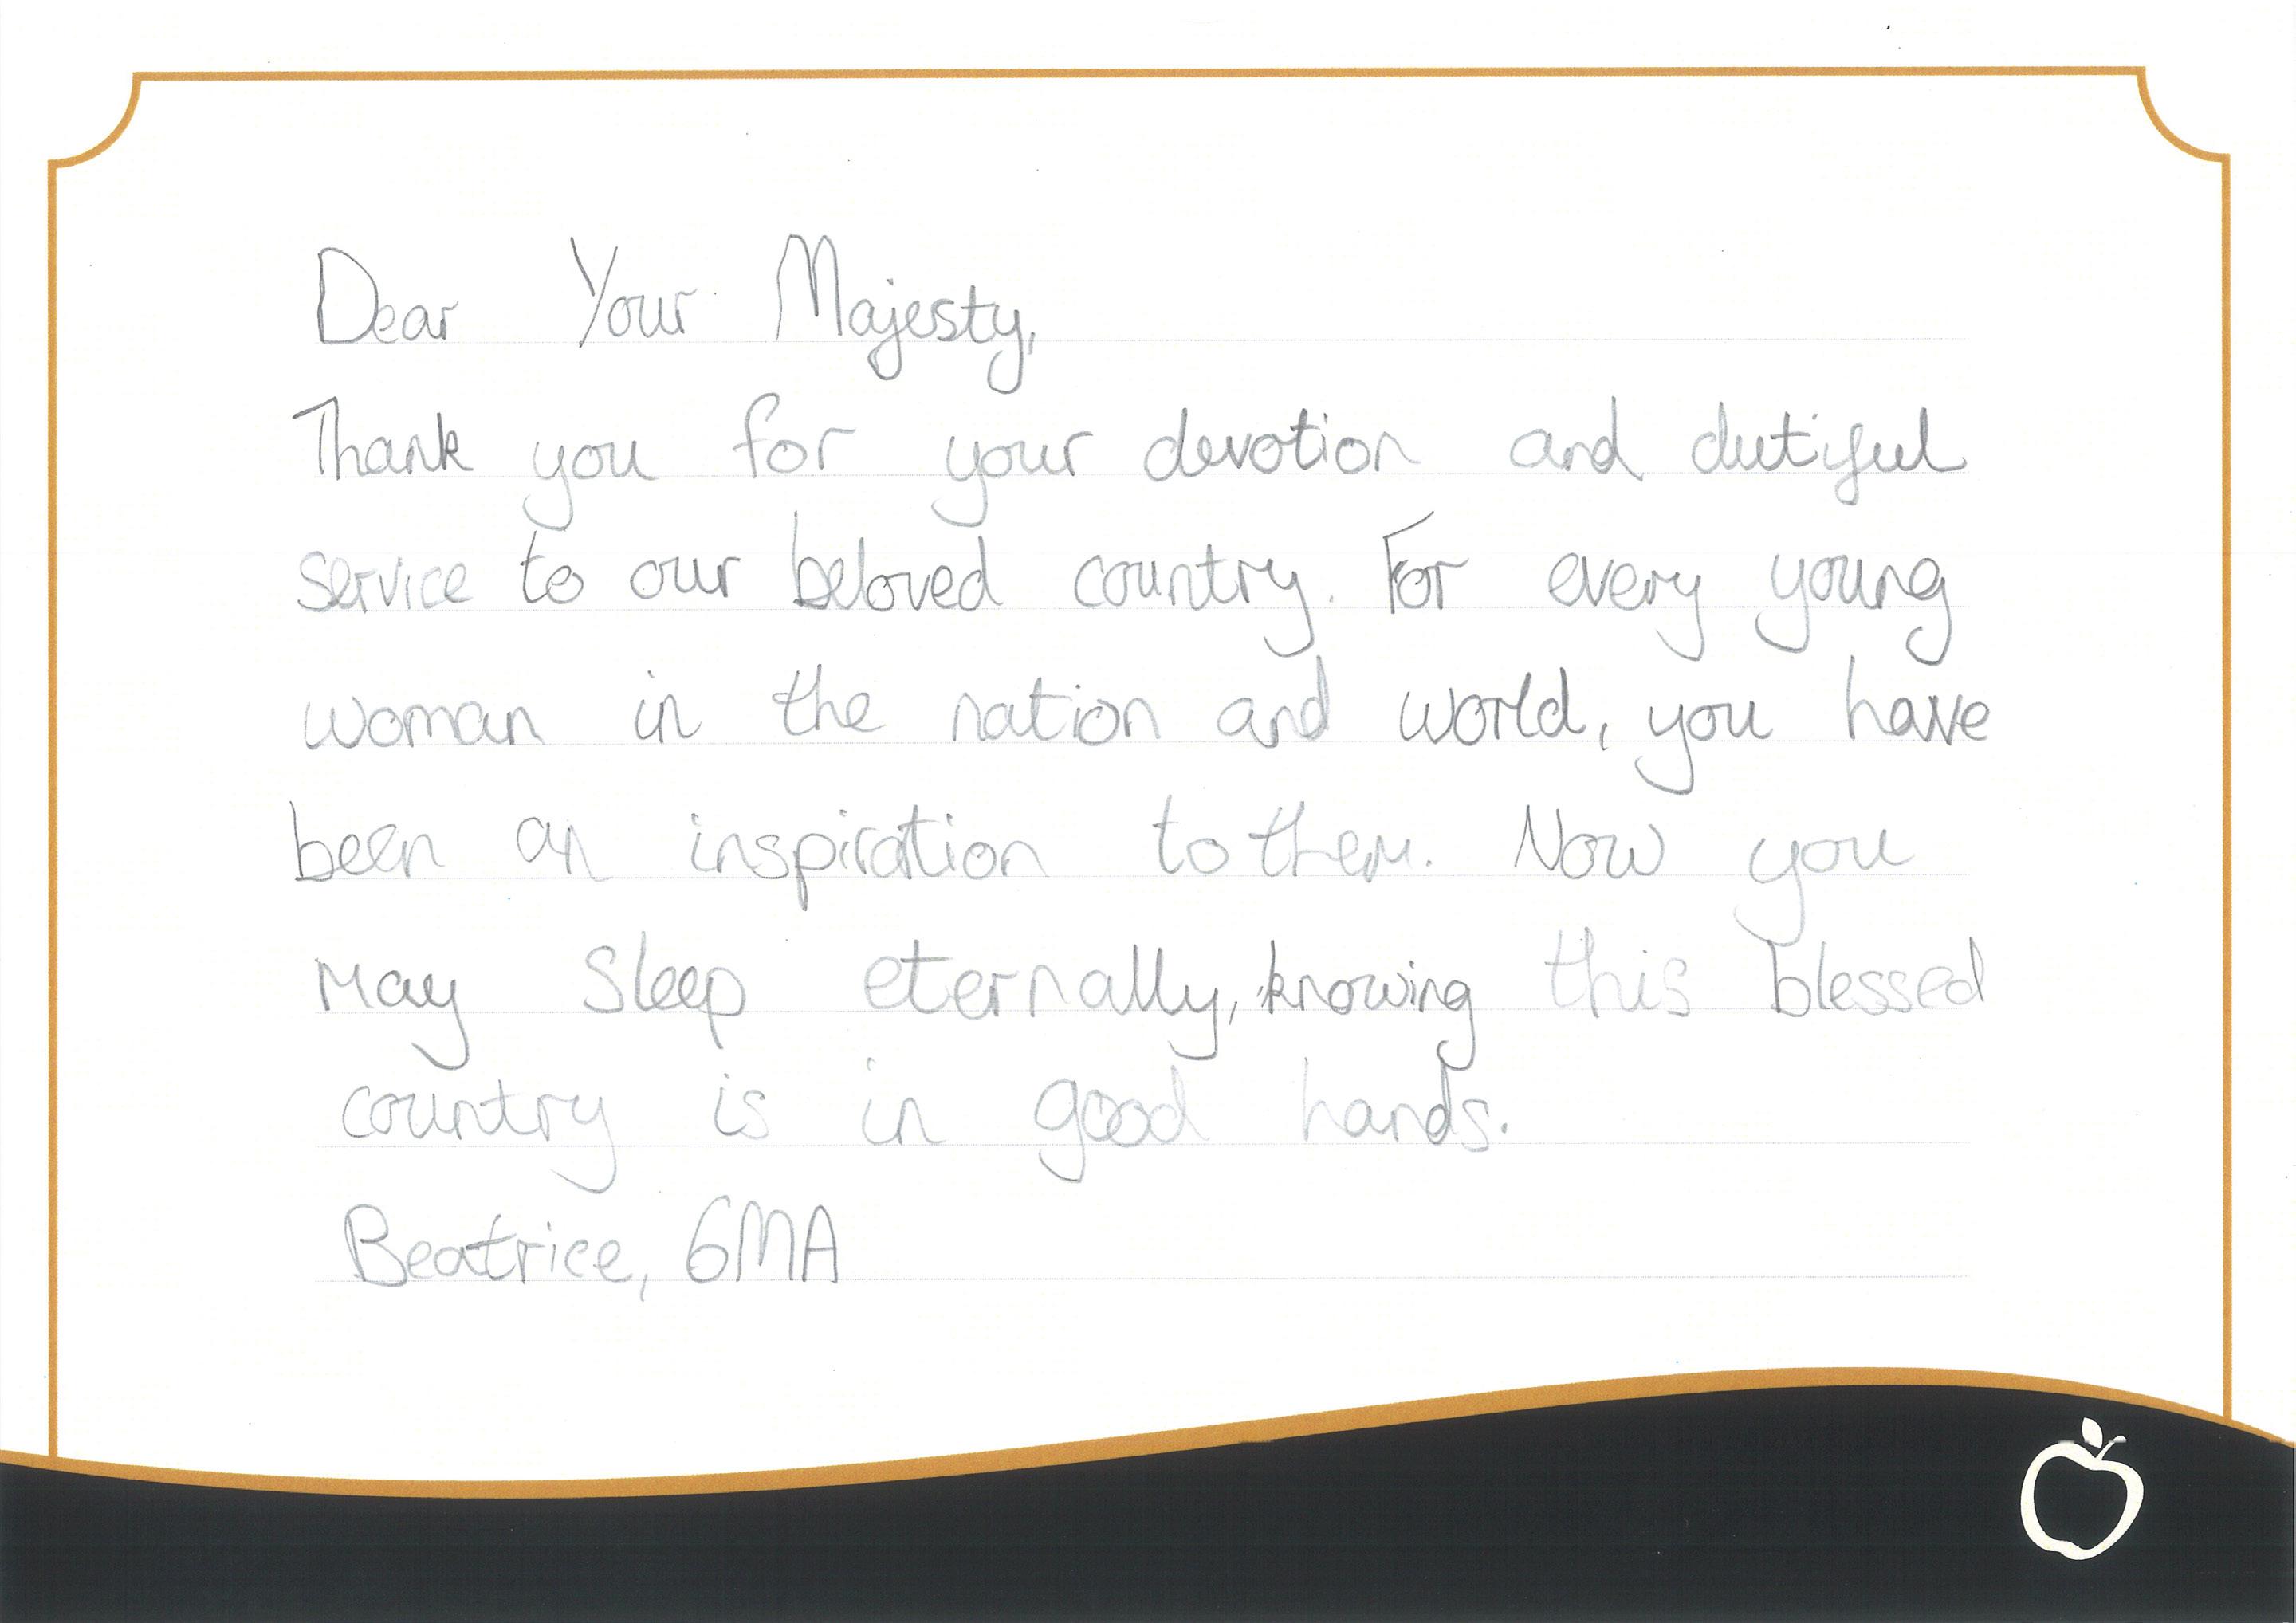 Dear Your Majesty,
Thank you for your devotion and dutiful
service to our beloved country. For every young
woman in the nation and world, you have
been an inspiration to them. Now you
may sleep eternally, knowing this blessed
country is in good hands.
Beatrice, 6MA